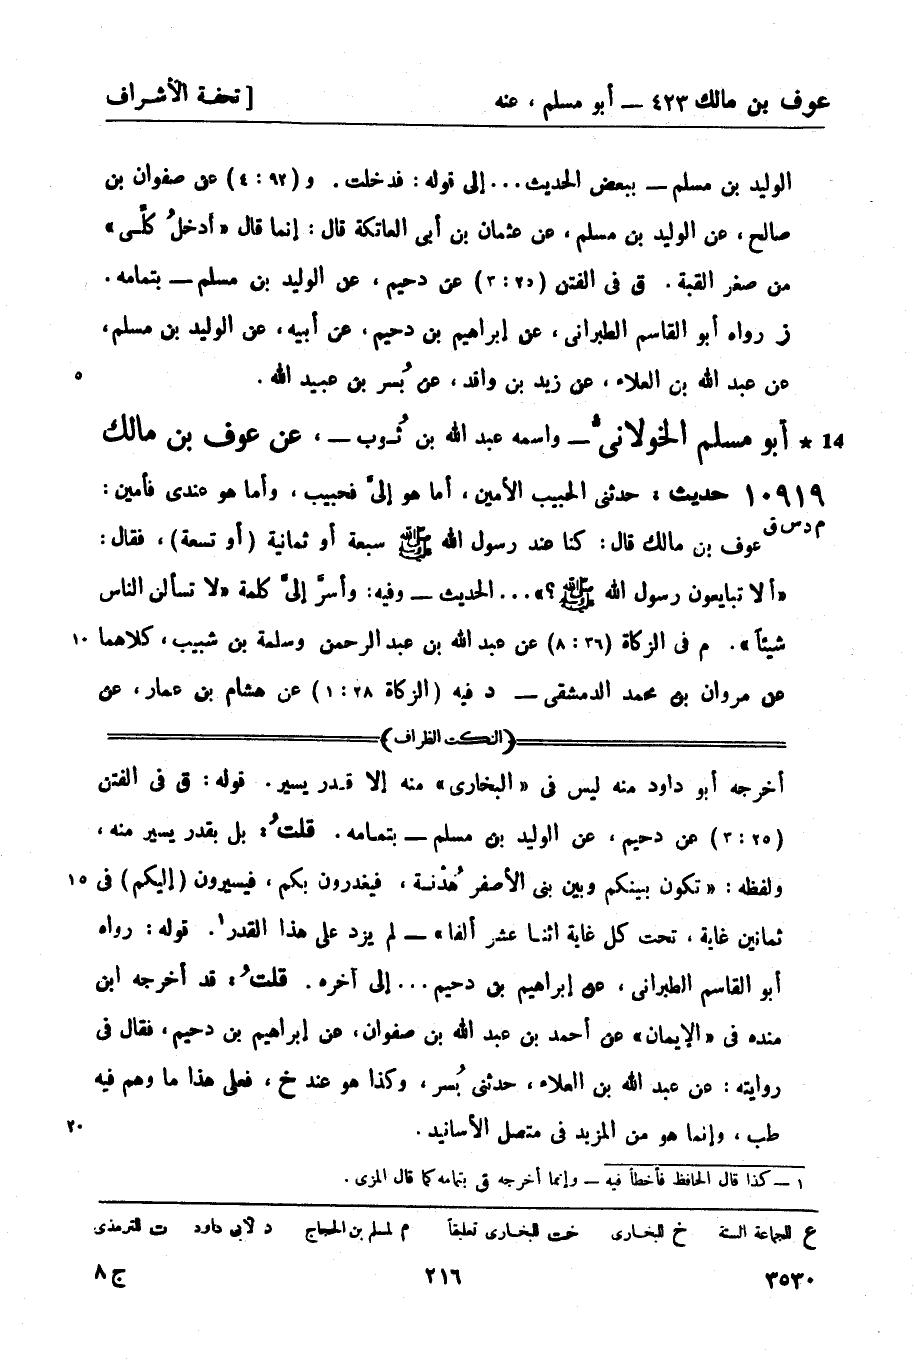 عوف بن مالك ٤٢٣ ــ أبو مسلم ، عنه [ تحفة الأشراف
الوليد بن مسلم ــ ببعض الحديث... إلى قوله : فدخلت . و (٩٢ : ٤) عن صفوان بن
صالح ، عن الوليد بن مسلم ، عن عثمان بن أبى العاتكة قال : إنما قال «أدخلُ كلِّى»
من صغر القبة . ق فى الفتن (٢٥ : ٣) عن دحيم ، عن الوليد بن مسلم ــ بتمامه .
ز رواه أبو القاسم الطبرانى ، عن إبراهيم بن دحيم ، عن أبيه ، عن الوليد بن مسلم ،
عن عبد الله بن العلاء ، عن زيد بن واقد ، عن بُسر بن عبيد الله . ٥
14 * أبو مسلم الخولانى ــ واسمه عبد الله بن ثُوب ــ ، عن عوف بن مالك
١٠٩١٩ حديث : حدثنى الحبيب الأمين ، أما هو إلىَّ فحبيب ، وأما هو عندى فأمين :
م د س ق عوف بن مالك قال : كنا عند رسول الله ﷺ سبعة أو ثمانية (أو تسعة) ، فقال :
«ألا تبايعون رسول الله ﷺ؟»... الحديث ــ وفيه : وأسرَّ إلىَّ كلمة «لا تسألن الناس
شيئاً» . م فى الزكاة (٣٦ : ٨) عن عبد الله بن عبد الرحمن وسلمة بن شبيب ، كلاهما ١٠
عن مروان بن محمد الدمشقى ــ د فيه (الزكاة ٢٨ : ١) عن هشام بن عمار ، عن
(النكت الظراف)
أخرجه أبو داود منه ليس فى «البخارى» منه إلا قدر يسير . قوله : ق فى الفتن
(٢٥ : ٣) عن دحيم ، عن الوليد بن مسلم ــ بتمامه . قلتُ : بل بقدر يسير منه ،
ولفظه : «تكون بينكم وبين بنى الأصفر هُدْنة ، فيغدرون بكم ، فيسيرون (إليكم) فى ١٥
ثمانين غاية ، تحت كل غاية اثنا عشر ألفا» ــ لم يزد على هذا القدر١ . قوله : رواه
أبو القاسم الطبرانى ، عن إبراهيم بن دحيم... إلى آخره . قلتُ : قد أخرجه ابن
منده فى «الإيمان» عن أحمد بن عبد الله بن صفوان ، عن إبراهيم بن دحيم ، فقال فى
روايته : عن عبد الله بن العلاء ، حدثنى بُسر ، وكذا هو عند خ ، فعلى هذا ما وهم فيه
طب ، وإنما هو من المزيد فى متصل الأسانيد . ٢٠
١ ــ كذا قال الحافظ فأخطأ فيه ــ وإنما أخرجه ق بتمامه كما قال المزى .
ع للجماعة الستة خ للبخارى خت للبخارى تعليقاً م لمسلم بن الحجاج د لأبى داود ت للترمذى
٣٥٣٠ ٢١٦ ج ٨